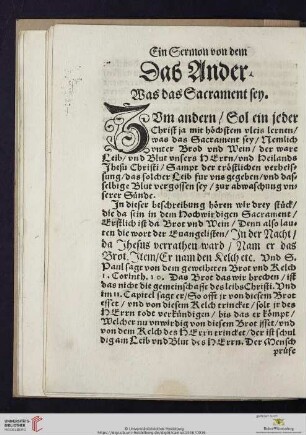 Ein Sermon von dem
Das Ander.
Was das Sacrament sey.
ZVm andern / Sol ein jeder
Christ ja mit höchstem vleis lernen /
was das Sacrament sey / Nemlich
vnter Brod vnd Wein / der ware
Leib / vnd Blut vnsers HErrn / vnd Heilands
Jhesu Christi / Sampt der tröstlichen verheis-
sung / das solcher Leib fur vns gegeben / vnd das-
selbige Blut vergossen sey / zur abwaschung vn-
serer Sünde.
In dieser beschreibung hören wir drey stück /
die da sein in dem Hochwirdigen Sacrament /
Erstlich ist da Brot vnd Wein / Denn also lau-
ten die wort der Euangelisten / In der Nacht /
da Jhesus verrathen ward / Nam er das
Brot. Item / Er nam den Kelch etc. Vnd S.
Paul sagt von dem geweiheten Brot vnd Kelch
1. Corinth. 10. Das Brot das wir brechen / ist
das nicht die gemeinschafft des leibs Christi. Vnd
im 11. Capitel sagt er / So offt jr von diesem Brot
esset / vnd von diesem Kelch trincket / solt jr des
HErrn todt verkündigen / bis das er kömpt /
Welcher nu vnwirdig von diesem Brot isset / vnd
von dem Kelch des HErrn trincket / der ist schul
dig am Leib vnd Blut des HErrn. Der Mensch
prüfe
UNIVERSITÄTS-
BIBLIOTHEK
HEIDELBERG
© Universitätsbibliothek Heidelberg
Baden-Württemberg